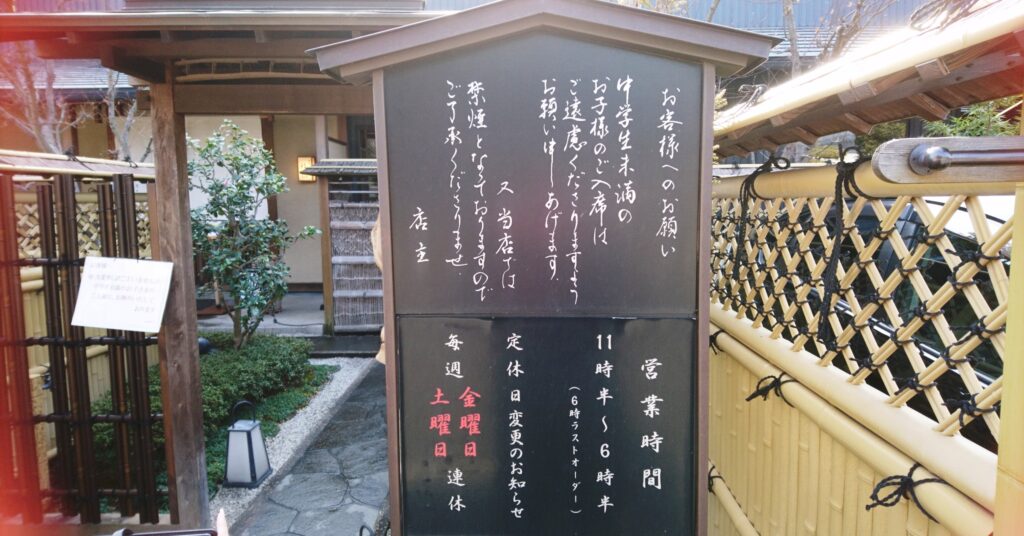 お客様へのお願い
中学生未満の
お子様のご入席は
ご遠慮くださりますよう
お願い申しあげます
又当店では
禁煙となっておりますので
ご了承くださりませ
店主
営業時間
11時半〜6時半
(6時ラストオーダー)
定休日変更のお知らせ
毎週
金曜日
土曜日
連休